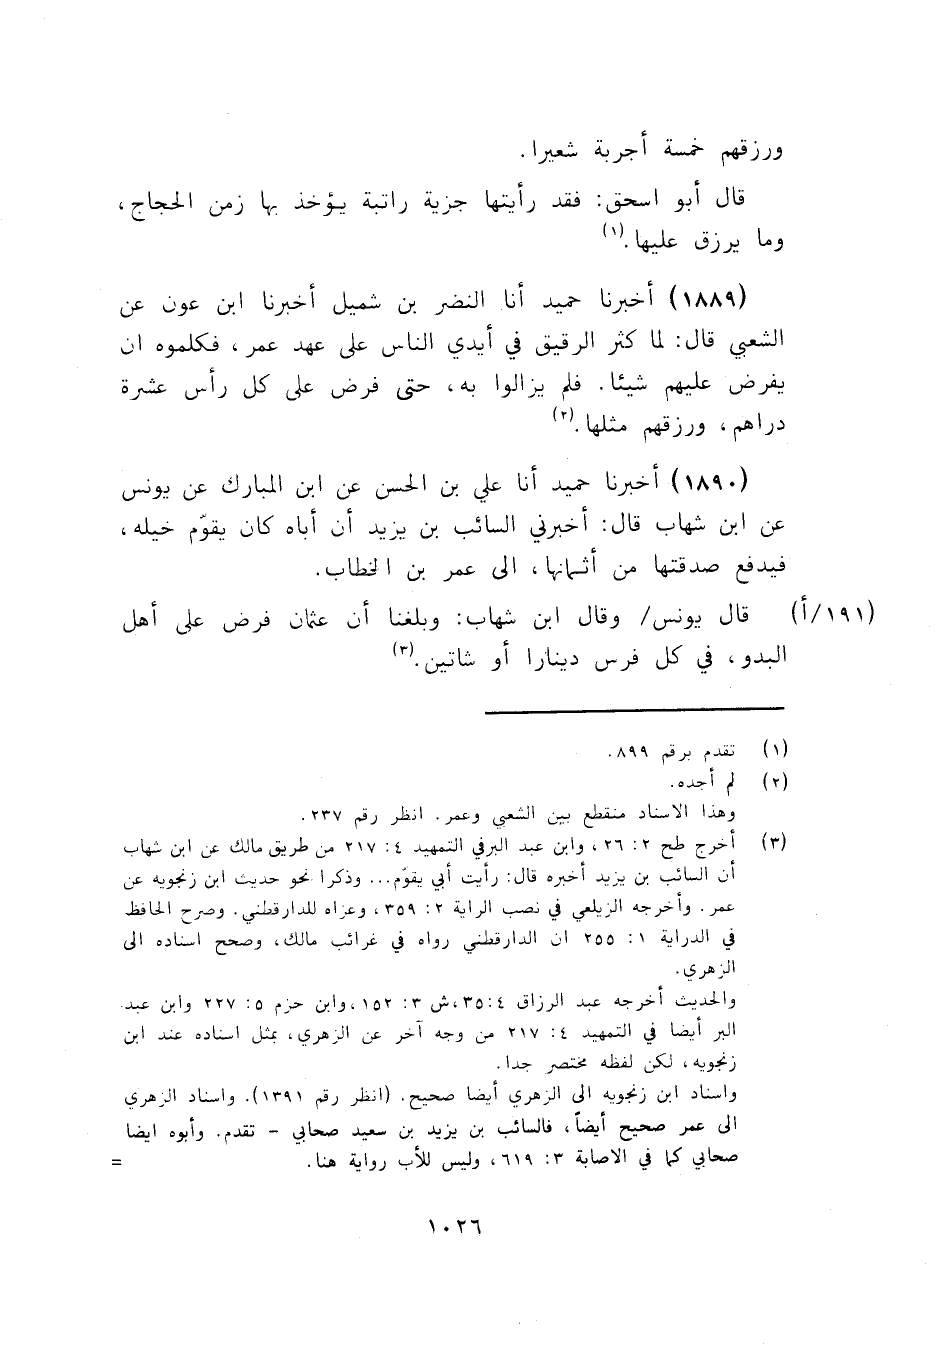 ورزقهم خمسة أجربة شعيرا.
قال أبو اسحق: فقد رأيتها جزية راتبة يؤخذ بها زمن الحجاج،
وما يرزق عليها.(١)
(١٨٨٩) أخبرنا حميد أنا النضر بن شميل أخبرنا ابن عون عن
الشعبي قال: لما كثر الرقيق في أيدي الناس على عهد عمر، فكلموه ان
يفرض عليهم شيئا. فلم يزالوا به، حتى فرض على كل رأس عشرة
دراهم، ورزقهم مثلها.(٢)
(١٨٩٠) أخبرنا حميد أنا علي بن الحسن عن ابن المبارك عن يونس
عن ابن شهاب قال: أخبرني السائب بن يزيد أن أباه كان يقوّم خيله،
فيدفع صدقتها من أثمانها، الى عمر بن الخطاب.
(١٩١/أ) قال يونس/ وقال ابن شهاب: وبلغنا أن عثمان فرض على أهل
البدو، في كل فرس دينارا أو شاتين.(٣)
(١) تقدم برقم ٨٩٩.
(٢) لم أجده.
وهذا الاسناد منقطع بين الشعبي وعمر. انظر رقم ٢٣٧.
(٣) أخرج طح ٢: ٢٦، وابن عبد البر في التمهيد ٤: ٢١٧ من طريق مالك عن ابن شهاب
أن السائب بن يزيد أخبره قال: رأيت أبي يقوّم... وذكرا نحو حديث ابن زنجويه عن
عمر. وأخرجه الزيلعي في نصب الراية ٢: ٣٥٩، وعزاه للدارقطني. وصرح الحافظ
في الدراية ١: ٢٥٥ ان الدارقطني رواه في غرائب مالك، وصحح اسناده الى
الزهري.
والحديث أخرجه عبد الرزاق ٤: ٣٥، ش ٣: ١٥٢، وابن حزم ٥: ٢٢٧ وابن عبد
البر أيضا في التمهيد ٤: ٢١٧ من وجه آخر عن الزهري، بمثل اسناده عند ابن
زنجويه، لكن لفظه مختصر جدا.
واسناد ابن زنجويه الى الزهري أيضا صحيح. (انظر رقم ١٣٩١). واسناد الزهري
الى عمر صحيح أيضاً، فالسائب بن يزيد بن سعيد صحابي - تقدم. وأبوه ايضا
صحابي كما في الاصابة ٣: ٦١٩، وليس للأب رواية هنا. =
١٠٢٦